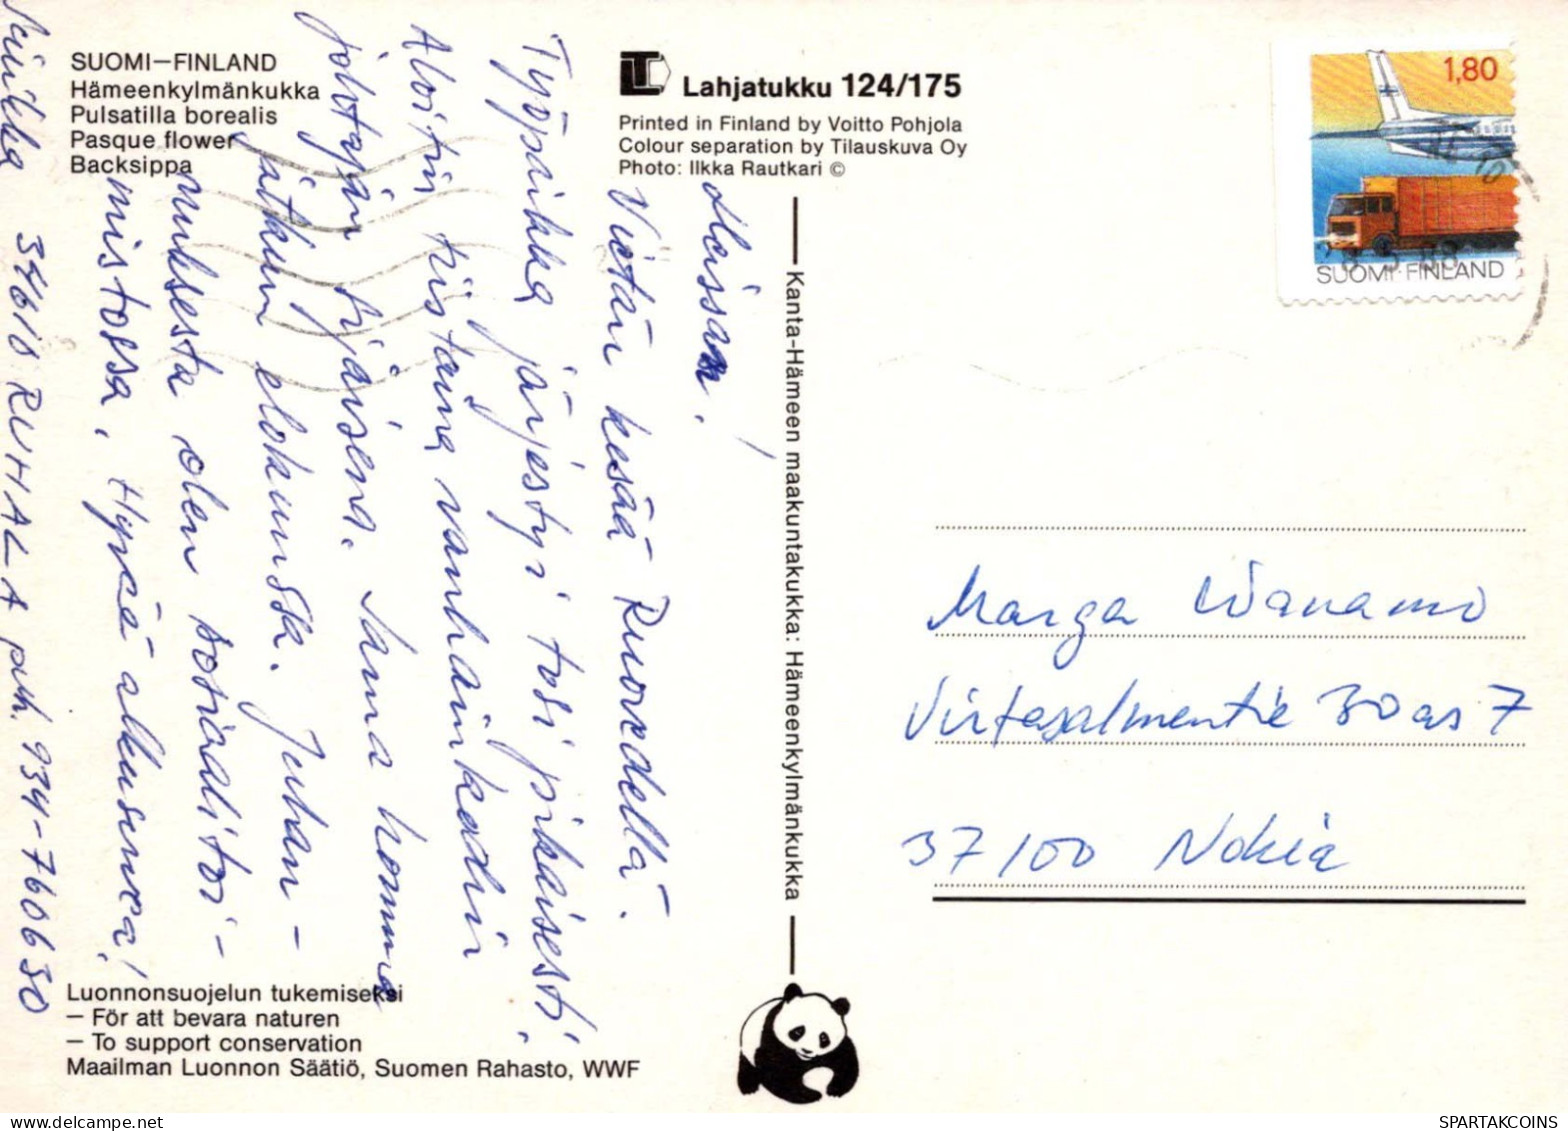 SUOMI–FINLAND
Hämeenkylmänkukka
Pulsatilla borealis
Pasque flower
Backsippa
Lahjatukku 124/175
Printed in Finland by Voitto Pohjola
Colour separation by Tilauskuva Oy
Photo: Ilkka Rautkari ©
1,80
SUOMI-FINLAND
Kanta-Hämeen maakuntakukka: Hämeenkylmänkukka
oleissan!
Vietän kesää Ruovedellä.
Työpaikka järjestyi tosi pikaisesti.
Aloitin tiistaina vanhainkodin
johtajan sijaisena. Sama homma
jatkuu elokuussa. Juhan-
nuksesta olen sosiaalitoi-
mistossa. Hyvää alkusuvea!
34618 RUHALA puh. 934-760630
Marga Wanamo
Virtasalmentie 30 as 7
37100 Nokia
Luonnonsuojelun tukemiseksi
– För att bevara naturen
– To support conservation
Maailman Luonnon Säätiö, Suomen Rahasto, WWF
SPARTAKCOINS